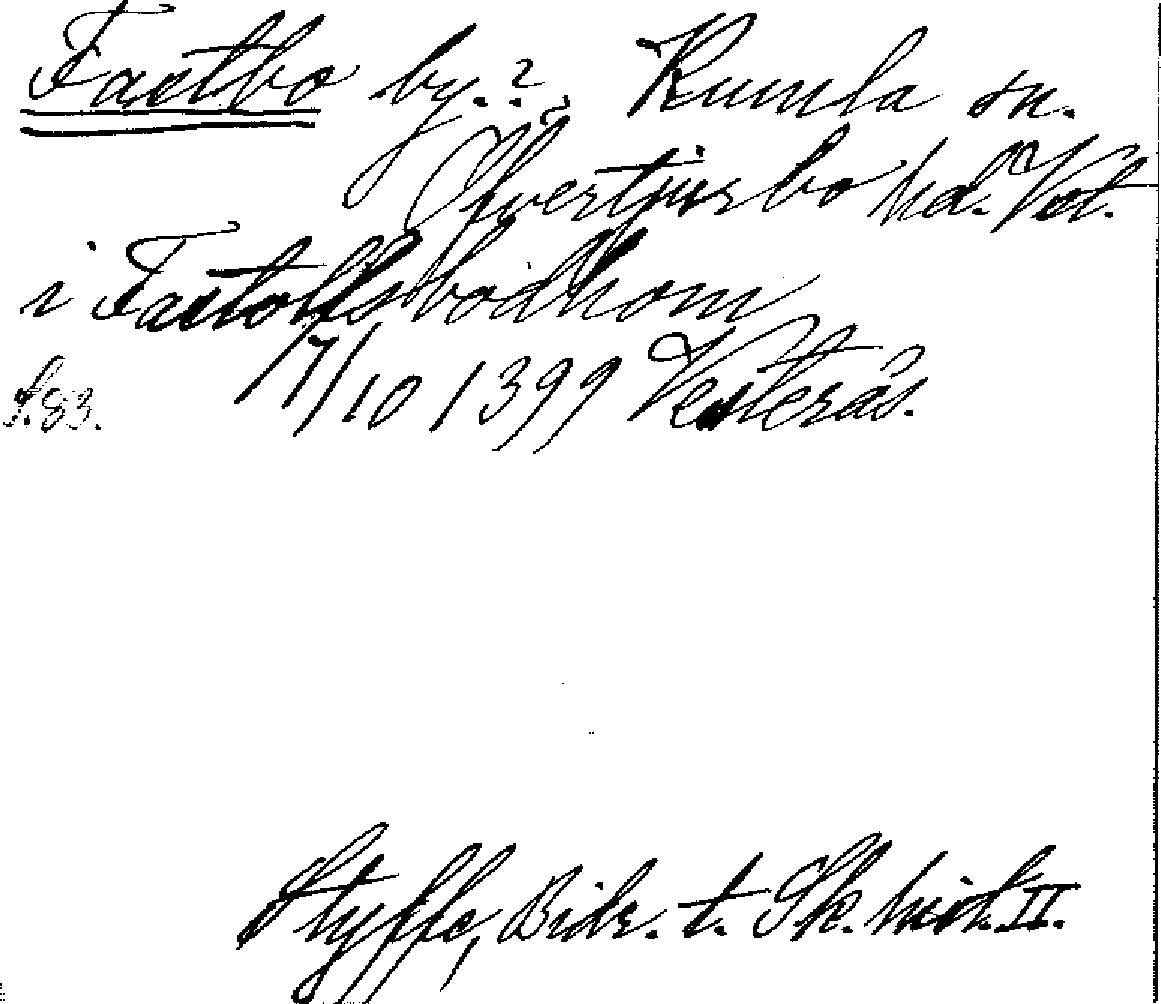 Fastbo by.?, Kumla sn.
Öfvertjurbo hd. Vst.
i Fastolfsbodhom
17/10 1399 Vesterås.
S.83.
Styffe, Bidr. t. Sk. hist. II.